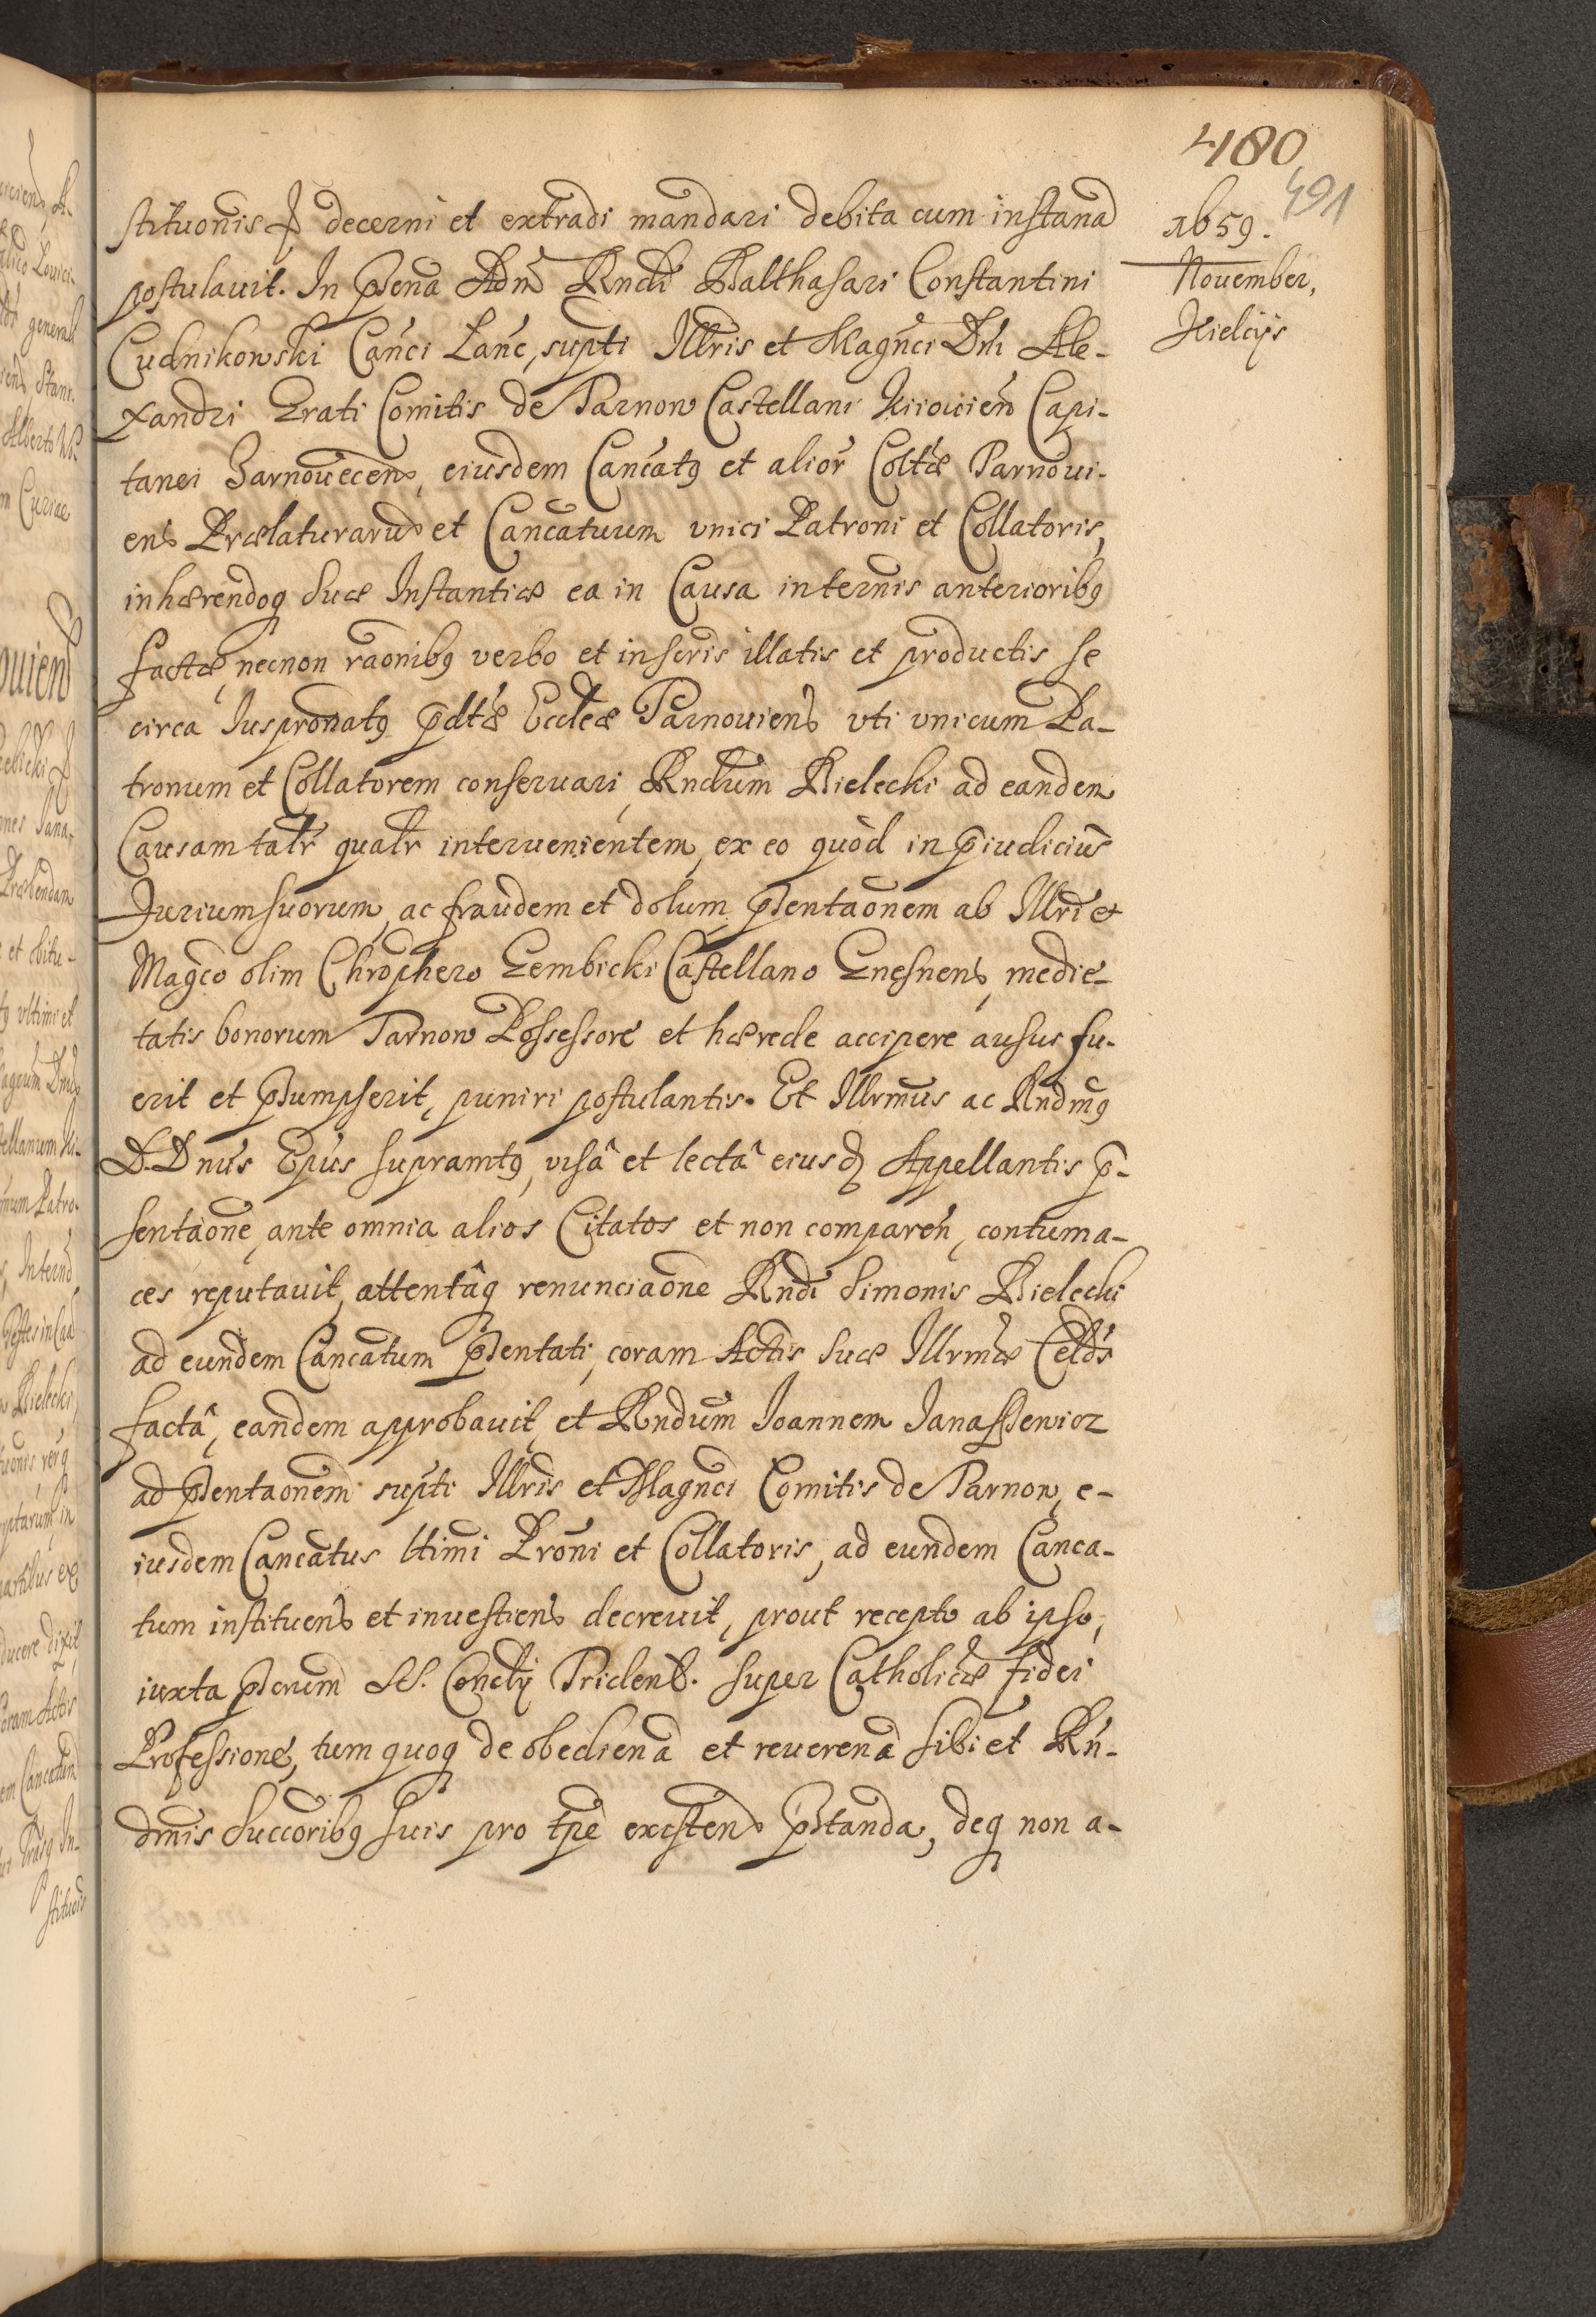 480
491
1659.
November,
Kielcijs
stituōnis decerni et extradi mandari debita cum instāna
postulauit. In p̄sēna Adm̄ Rndi Balthasari Constantini
Cudnikowski Canci Lanc, supti Illris et Magnci Dni Ale-
xandri Zrati Comitis de Tarnow Castellani Kiiouien̄ Capi-
tanei Zarnouecen, eiusdem Cancatq et alior Coltæ Tarnoui-
ens Prælaturarū et Cancatuum vnici Patroni et Collatoris,
inhærendoq suæ Instantiæ ea in Causa internis anterioribq
factæ, necnon raōnibq verbo et inscris illatis et productis se
circa Iuspronatq p̄dtæ Eccleæ Tarnouiens vti vnicum Pa-
tronum et Collatorem conseruari, Rndum Bielecki ad eandem
Causam talr̄ qualr̄ interuenientem, ex eo quòd in p̄iudiciū
Jurium suorum, ac fraudem et dolum p̄sentaōnem ab Illri et
Magco olim Chrōphero Gembicki Castellano Gnesnens, medie-
tatis bonorum Tarnow Possessore et hærede accipere ausus fu-
erit et p̄sumpserit, puniri postulantis. Et Illrmus ac Rndmq
D. Dnus Epus supramtq, visâ et lectâ eiusd Appellantis p̄-
sentaōne, ante omnia alios Citatos et non comparen̄, contuma-
ces reputauit, attentâq renunciaōne Rndi Simonis Bielecki
ad eundem Cancatum p̄sentati, coram Actis suæ Illrmæ Celdis
factâ, eandem approbauit, et Rndum Joannem Janaszewicz
ad p̄sentaōnem supti Illris et Magnci Comitis de Tarnow, e-
iusdem Cancatus ltimi Proni et Collatoris, ad eundem Canca-
tum instituens et inuestiens decreuit, prout recepto ab ipso,
iuxta p̄scrum SS. Conclij Trident. super Catholicæ fidei
Professione, tum quoq de obediēna et reuerēna sibi et Rn-
dmis Succoribq suis pro tpe existen p̄standa, deq non a-